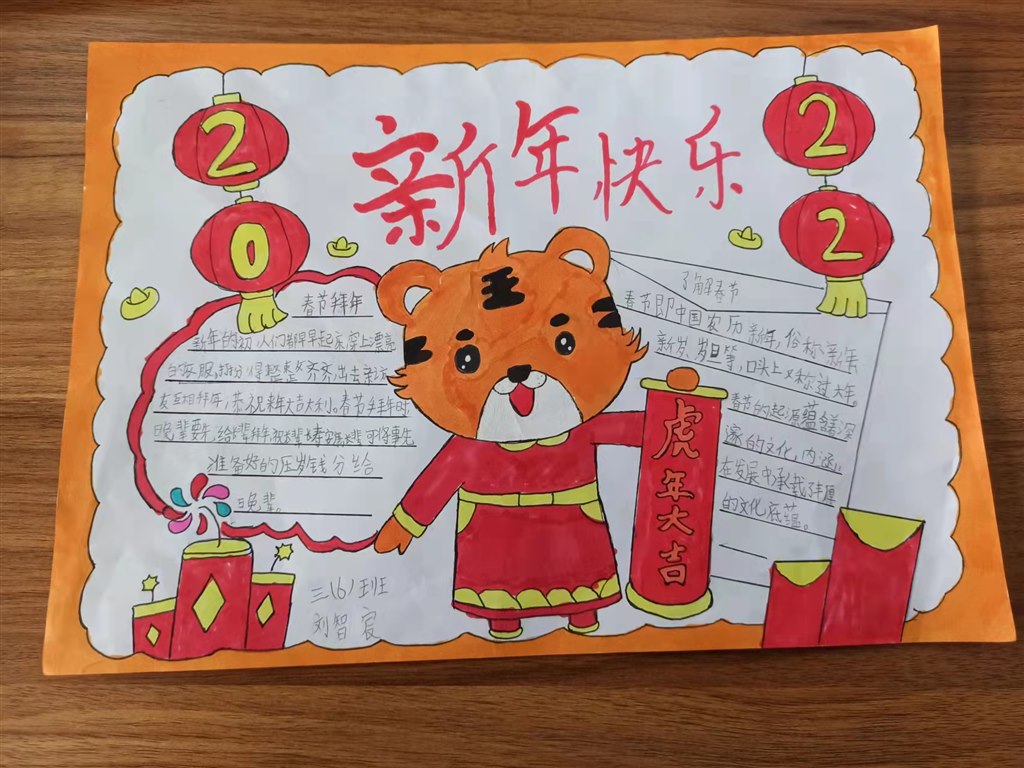 新年快乐
2
0
2
2
春节拜年
新年的初,人们都早早起来穿上漂亮
的衣服,打扮得整整齐齐出去亲访
友互相拜年,恭祝来年大吉大利。春节拜年时
晚辈要先给长辈拜年,祝长辈长寿安康,长辈可将事先
准备好的压岁钱分给
晚辈。
了解春节
春节即中国农历新年,俗称新年
新岁、岁旦等,口头上又称过大年。
春节的起源蕴含深
邃的文化内涵。
在发展中承载了丰厚
的文化底蕴。
王
虎年大吉
三(6)班
刘智宸